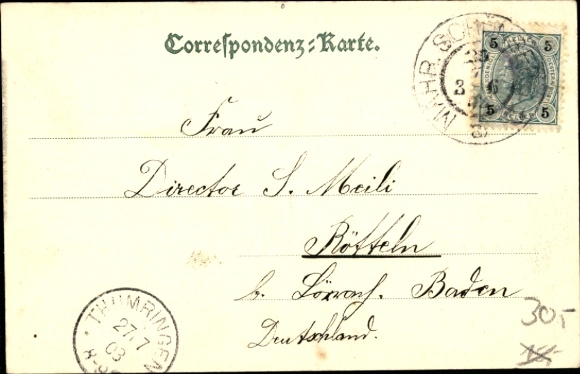 Correspondenz-Karte.
MÄHR. SCHÖN
5 5
5 5
Frau
Director S. Meili
Rötteln
b. Lörrach. Baden
Deutschland.
THUMRINGEN
27.7
03
30.-